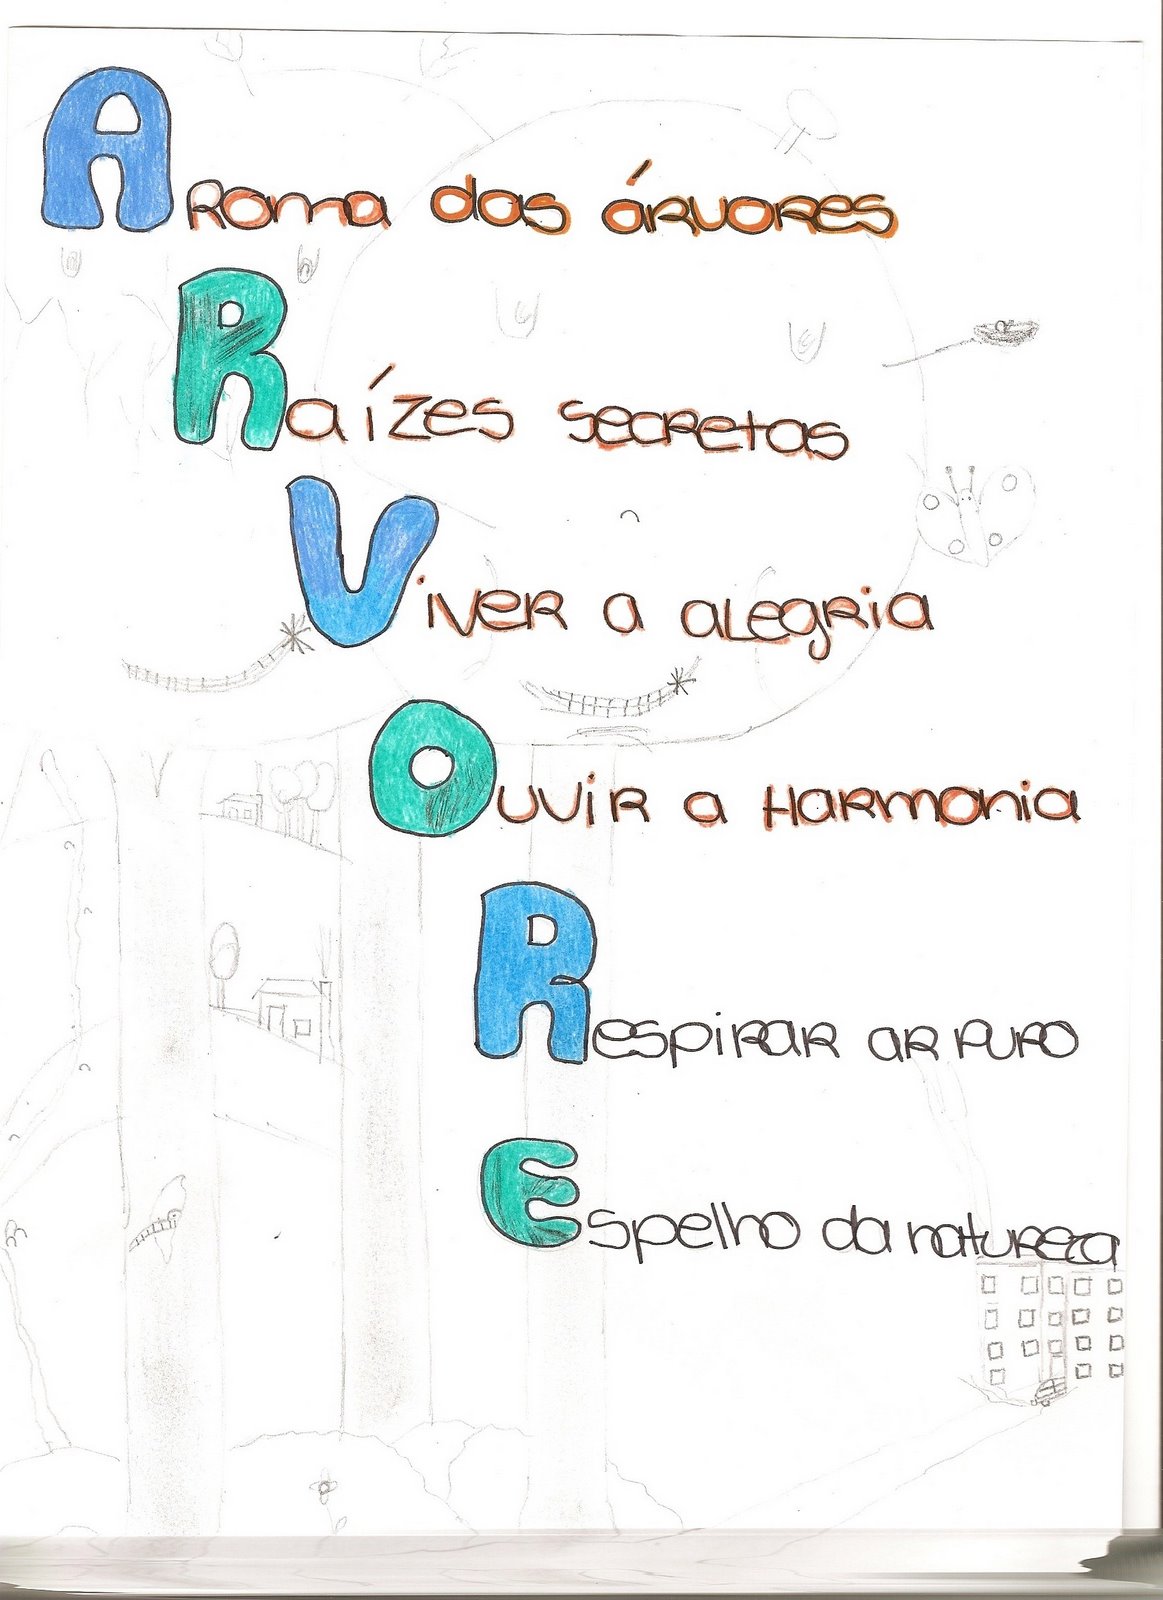 Aroma das árvores
Raízes secretas
Viver a alegria
Ouvir a harmonia
Respirar ar puro
Espelho da natureza